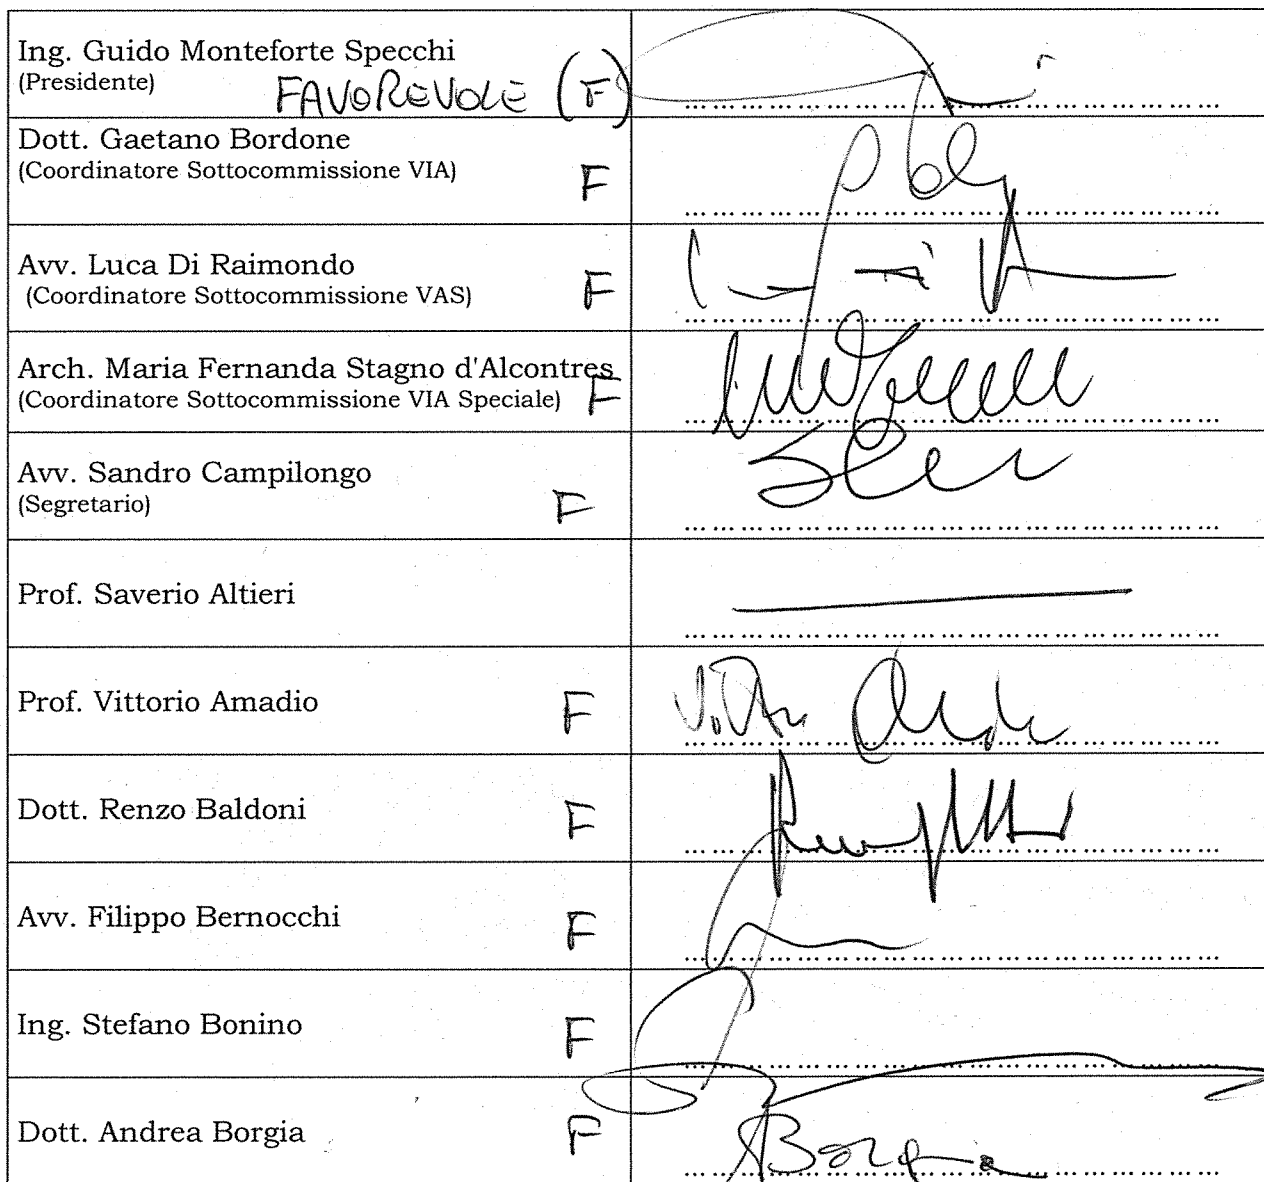 Ing. Guido Monteforte Specchi
(Presidente)
FAVOREVOLE (F)
Dott. Gaetano Bordone
(Coordinatore Sottocommissione VIA)
F
Avv. Luca Di Raimondo
(Coordinatore Sottocommissione VAS)
F
Arch. Maria Fernanda Stagno d'Alcontres
(Coordinatore Sottocommissione VIA Speciale) F
Avv. Sandro Campilongo
(Segretario)
F
Prof. Saverio Altieri
Prof. Vittorio Amadio F
Dott. Renzo Baldoni F
Avv. Filippo Bernocchi F
Ing. Stefano Bonino F
Dott. Andrea Borgia F Borgia